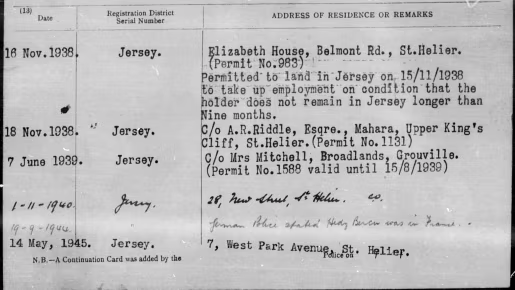 (13)
Date
Registration District
Serial Number
ADDRESS OF RESIDENCE OR REMARKS
16 Nov.1938. Jersey. Elizabeth House, Belmont Rd., St.Helier.
(Permit No.983)
Permitted to land in Jersey on 15/11/1938
to take up employment on condition that the
holder does not remain in Jersey longer than
Nine months.
18 Nov.1938. Jersey. C/o A.R.Riddle, Esqre., Mahara, Upper King's
Cliff, St.Helier.(Permit No.1131)
7 June 1939. Jersey. C/o Mrs Mitchell, Broadlands, Grouville.
(Permit No.1588 valid until 15/8/1939)
1-11-1940 Jersey. 28, New Street, St Helier.
19-9-1944 German Police stated Hedy Bercu was in France.
14 May, 1945. Jersey. 7, West Park Avenue, St. Helier.
N.B.—A Continuation Card was added by the Police on